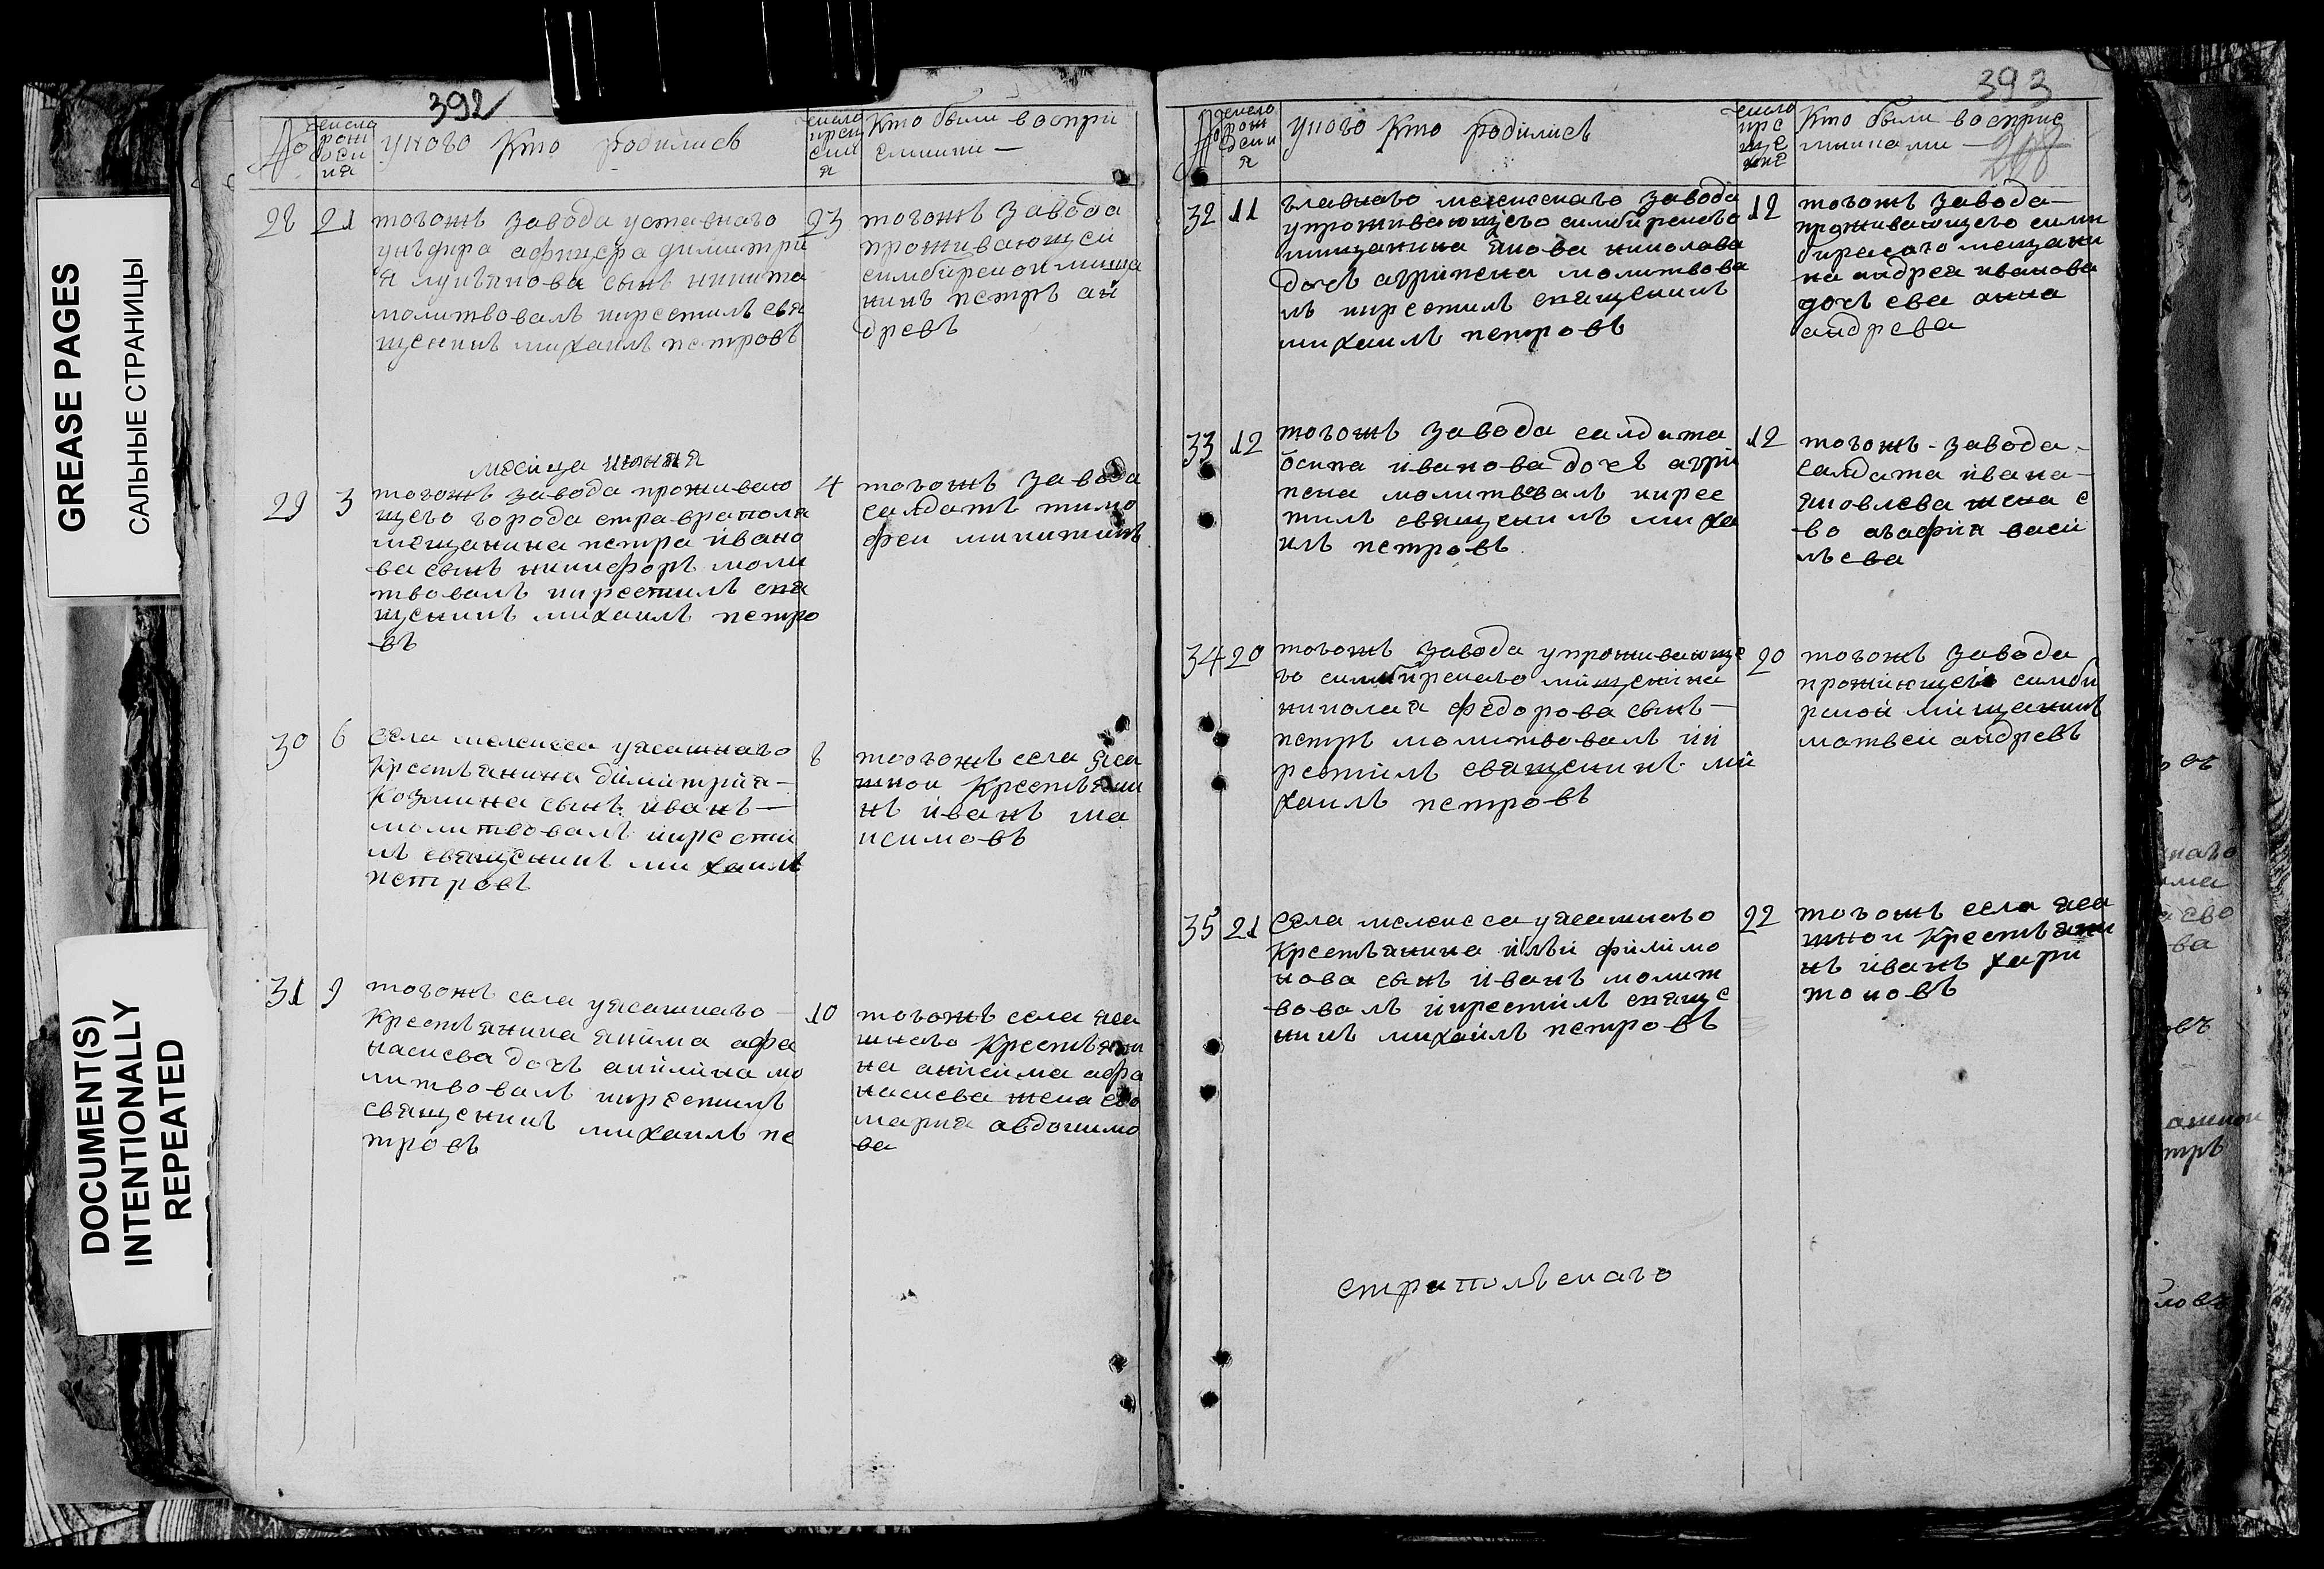 GREASE PAGES
САЛЬНЫЕ СТРАНИЦЫ
DOCUMENT(S)
INTENTIONALLY
REPEATED
392
№
число
рож
дени
ия
у кого кто родились
число
крещ
ения
кто были воспри
емники —
28
21
тогожъ завода уставнаго
унъдира афицера димитри
я лукъянова сынъ никита
молитвовалъ икрестилъ свя
щеникъ михаилъ петровъ
23
тогожъ завода
проживающеи
симбирскои меща
нинъ петръ ан
древъ
месяца июня
29
3
тогожъ завода проживаю
щего города ставраполя
мещанина петра ивано
ва сынъ никифоръ моли
твовалъ икрестилъ свя
щеникъ михаилъ петро
въ
4
тогожъ завода
салдатъ тимо
феи микитинъ
30
6
села мелекеса уясашнаго
крестьянина димитрия —
козмина сынъ иванъ —
молитвовалъ икрести
лъ священикъ михаилъ
петровъ
8
тогожъ села яса
шнои крестьяни
нъ иванъ ма
ксимовъ
31
9
тогожъ села уясашнаго —
крестьянина якима афа
насиева дочь акилина мо
литвовалъ икрестилъ
священикъ михаилъ пе
тровъ
10
тогожъ села яса
шнаго крестьяни
на анисима афа
насиева жена ево
мария авдокимо
ва
393
№
число
рож
дени
я
у кого кто родилисъ
число
кре
ще
ние
кто были восприе
мниками —
32
11
главнаго мелекескаго завода
упроживающего симбирскаго
мищанина якова николава
дочь агрипена молитвова
лъ икрестилъ священикъ
михаилъ петровъ
12
тогожъ завода —
проживающего сим
бирскаго мещани
на андрея иванова
дочь ева анна
андрева
33
12
тогожъ завода салдата
осипа иванова дочь агри
пена молитвовалъ икрес
тилъ священикъ миха
илъ петровъ
12
тогожъ завода
салдата ивана —
яковлева жена е
во агафия васи
льева
34
20
тогожъ завода упроживающе
го симбирскаго мищенина
николая федорова сынъ —
петръ молитвовалъ ик
рестилъ священикъ ми
хаилъ петровъ
20
тогожъ завода
симби
рскои мищанинъ
матвеи андревъ
35
21
села мелекеса уясашнаго
крестьянина ильи филимо
нова сынъ иванъ молит
вовалъ икрестилъ свяще
никъ михаилъ петровъ
22
тогожъ села яса
шнои крестьяни
нъ иванъ хари
тоновъ